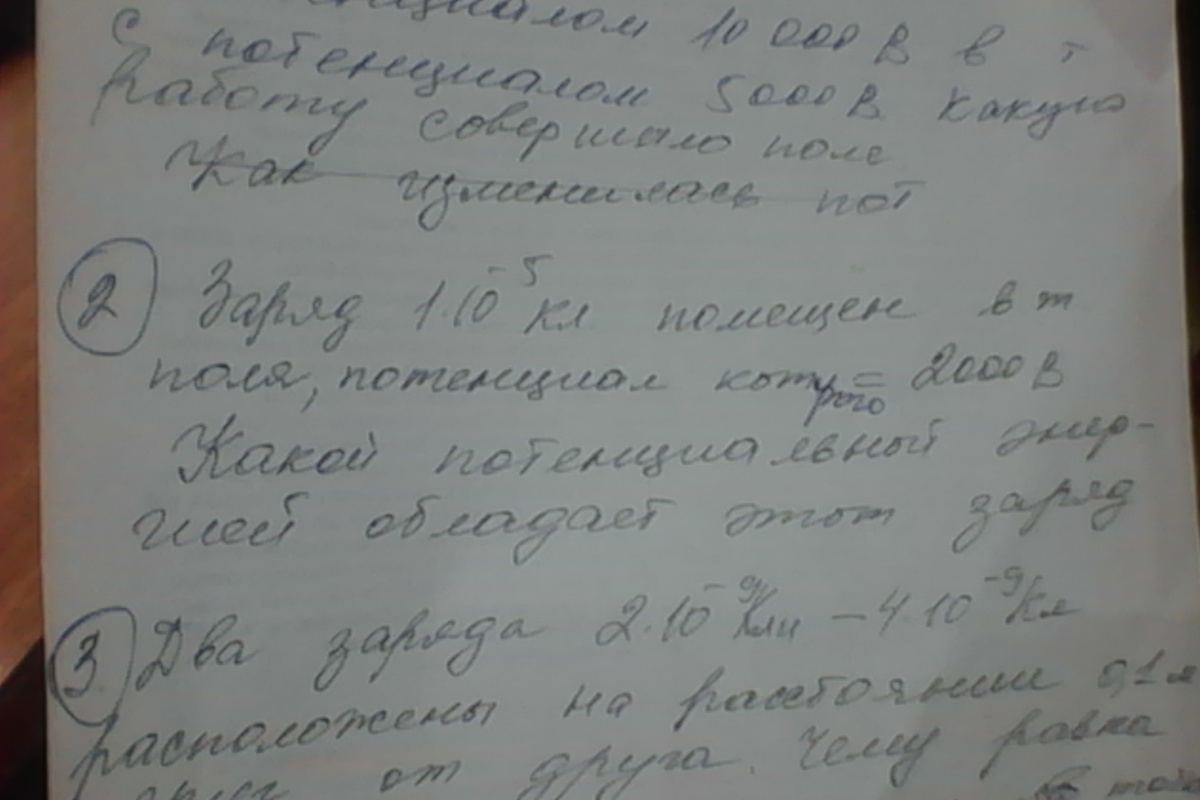 нциалом 10 000 В в т
с потенциалом 5000 В какую
работу совершало поле
Как изменилась пот
2 Заряд 1·10⁻⁵ кл помещен в т
поля, потенциал которого = 2000 В
Какой потенциальный энер-
гией обладает этот заряд
3 Два заряда 2·10⁻⁹ Кл и – 4·10⁻⁹ Кл
расположены на расстоянии 0,1 м
друг от друга. Чему равна